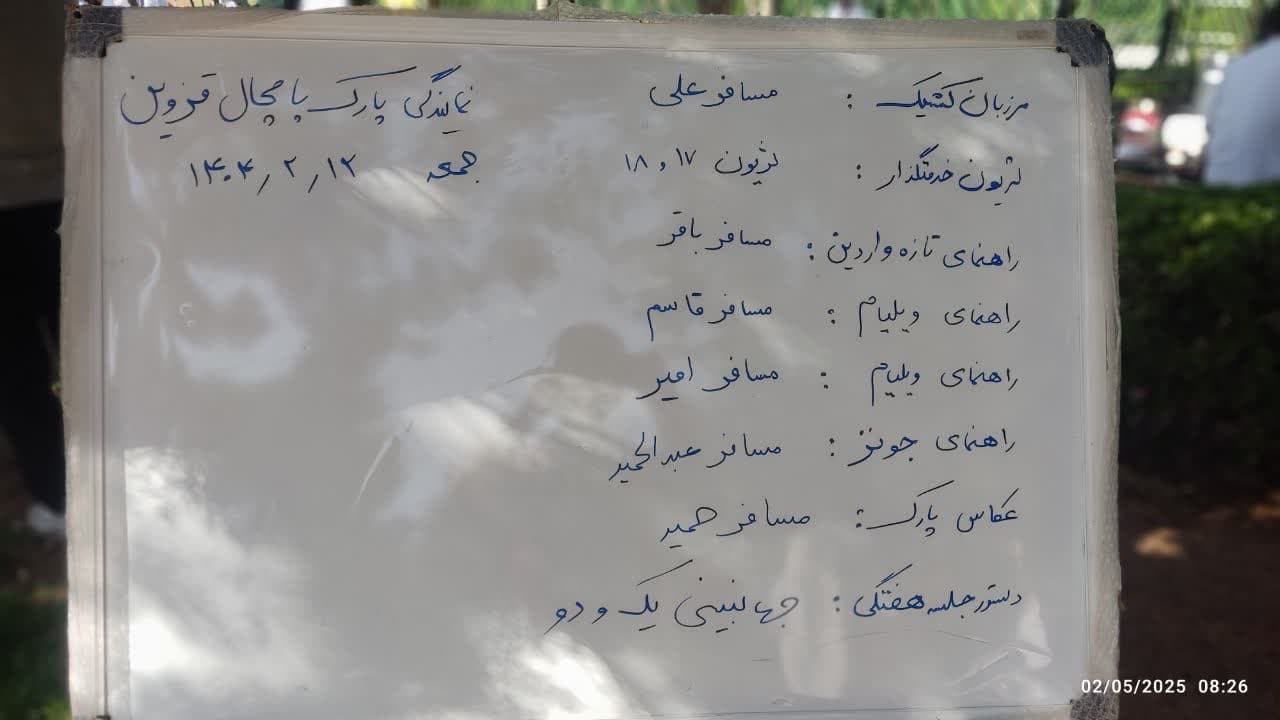 نمایندگی پارک پامچال قزوین
جمعه ۱۴۰۴/۲/۱۲
مرزبان کشیک : مسافر علی
لژیون خدمتگذار : لژیون ۱۷ و ۱۸
راهنمای تازه واردین : مسافر باقر
راهنمای ویلیام : مسافر قاسم
راهنمای ویلیام : مسافر امیر
راهنمای جونز : مسافر عبدالحمید
عکاس پارک : مسافر حمید
دستور جلسه هفتگی : جهانبینی یک و دو
02/05/2025 08:26